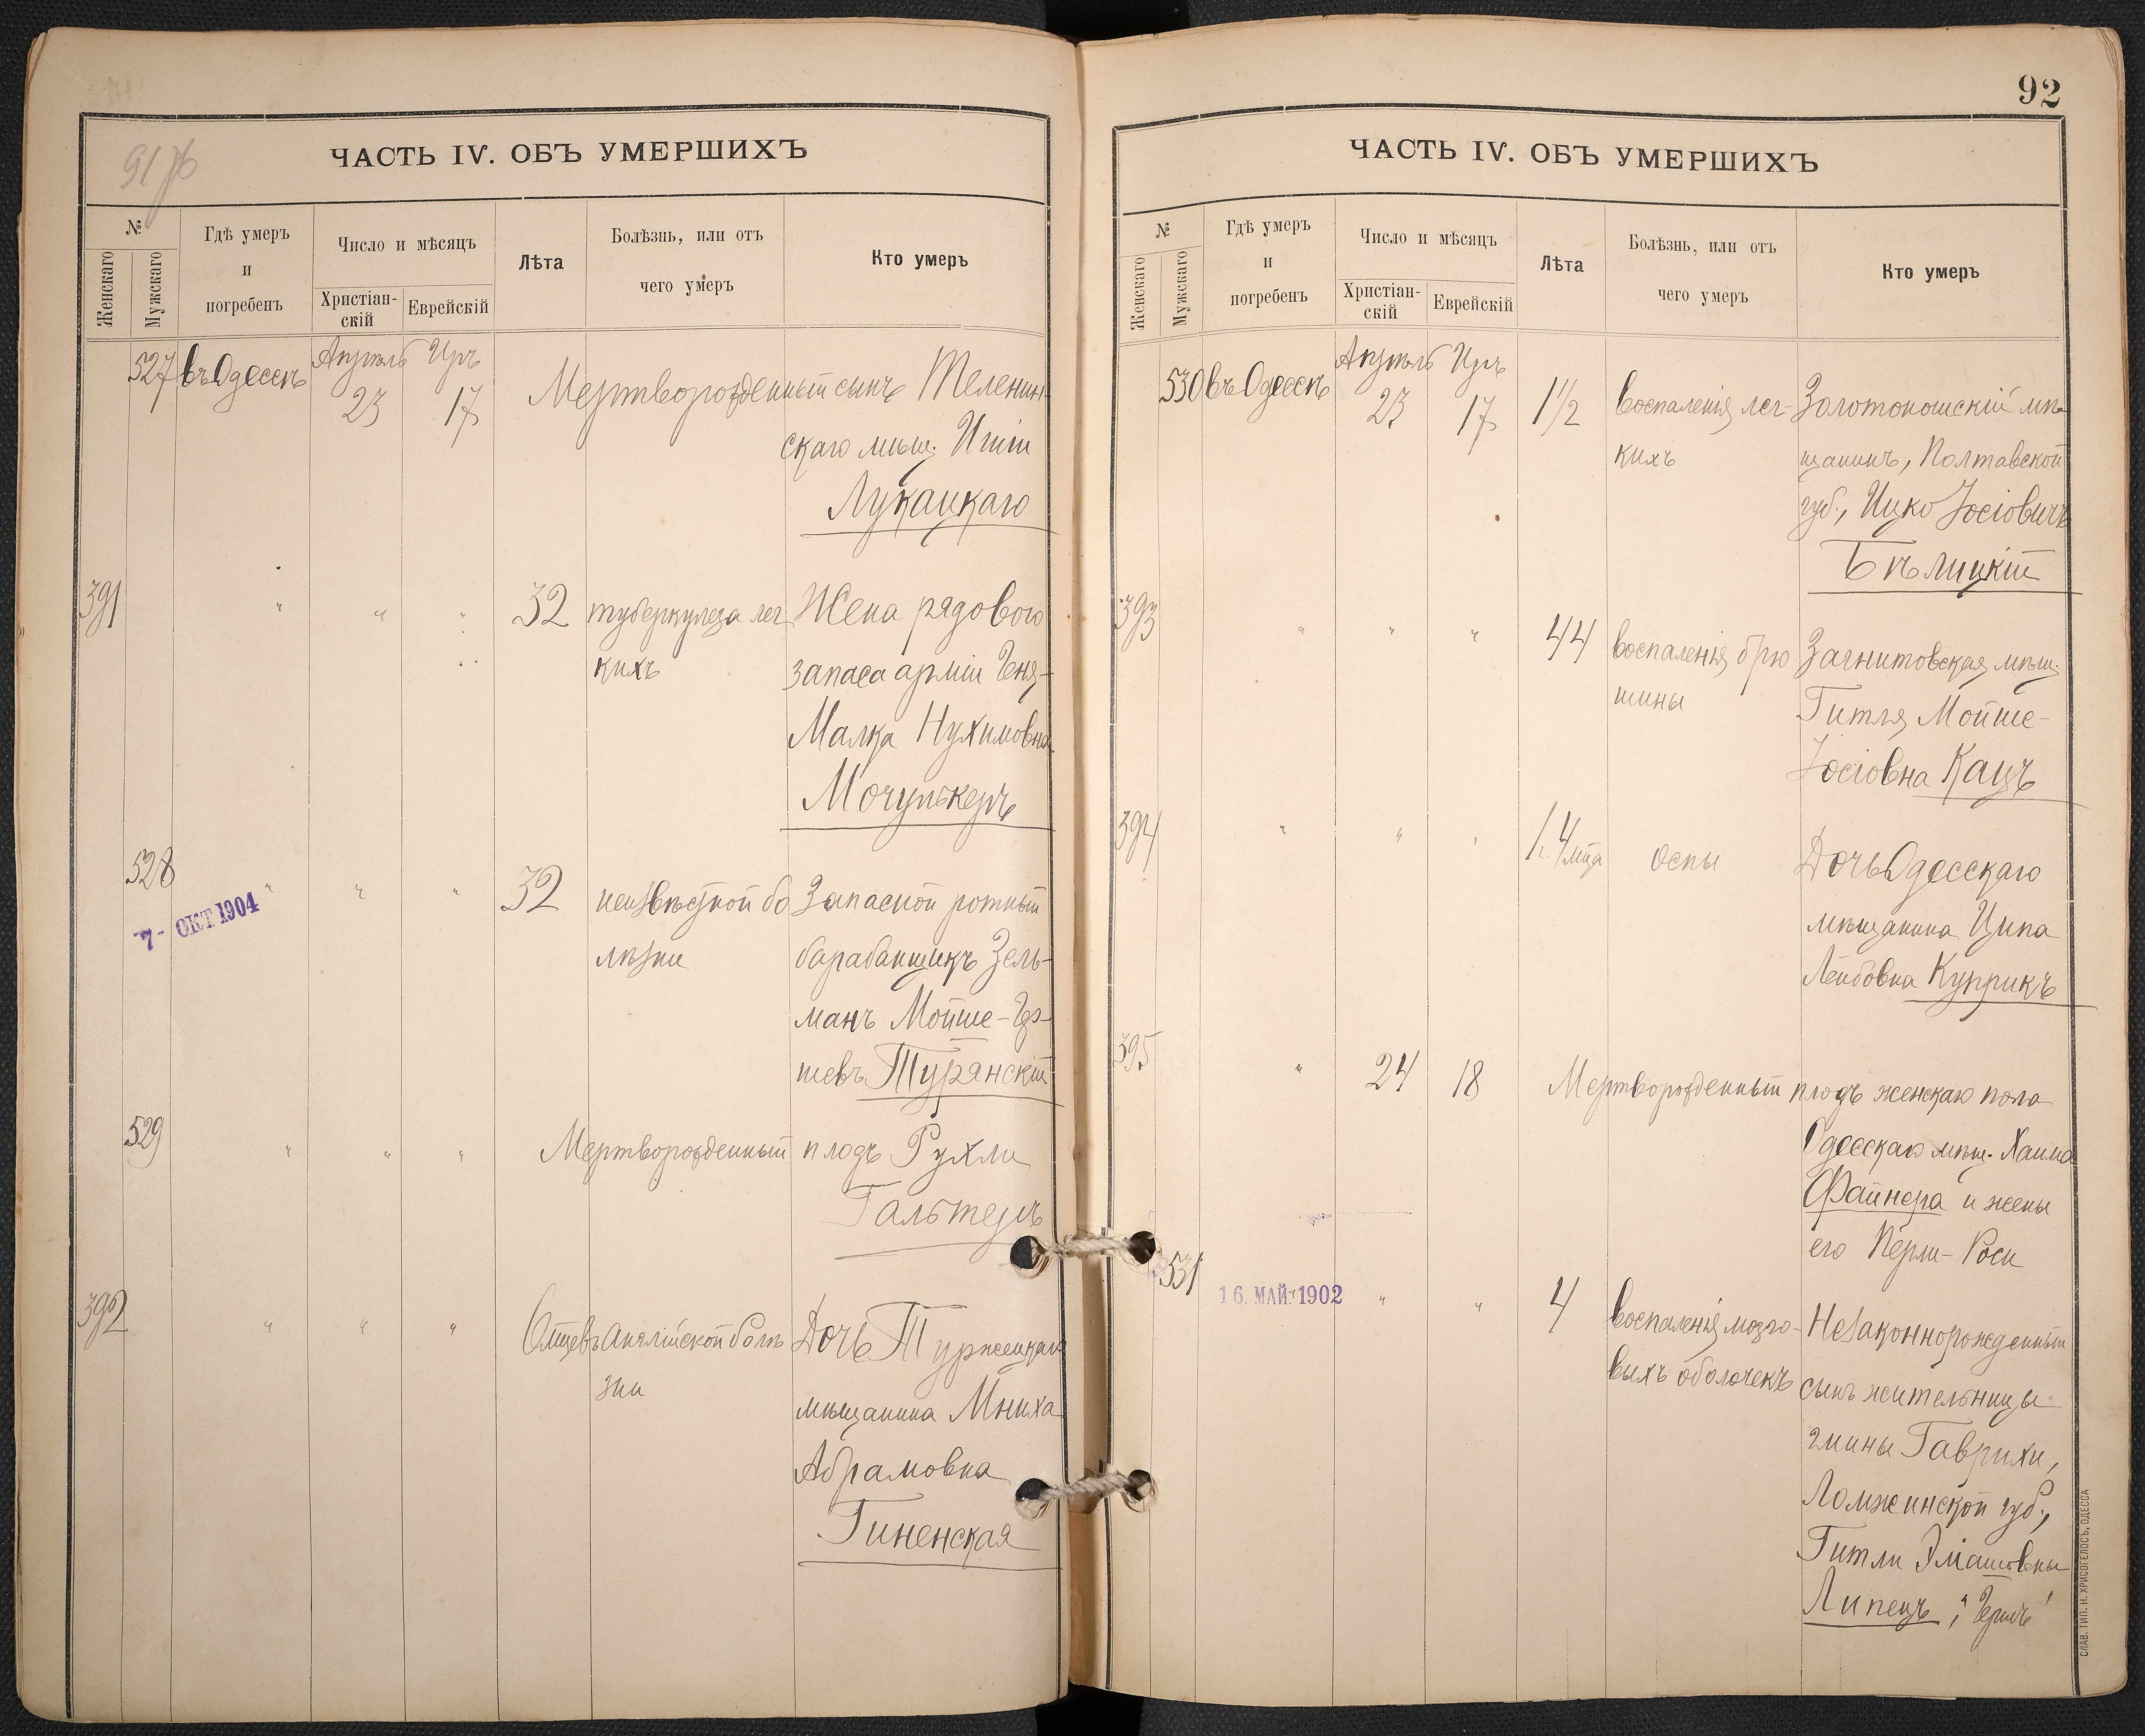 91 об
ЧАСТЬ IV. ОБЪ УМЕРШИХЪ
№
Женскаго
Мужскаго
Гдѣ умеръ
и
погребенъ
Число и мѣсяцъ
Христіан-
скій
Еврейскій
Лѣта
Болѣзнь, или отъ
чего умеръ
Кто умеръ
527 въ Одессѣ Апрѣль Иръ
23 17 Мертворожденный сынъ Теленин-
скаго мѣщ.
Лукацкаго
391 " " " 32 туберкулеза лег Жена рядового
кихъ запаса арміи Геня-
Малка Нухимовна
Мочулькеръ
528 " " " 32 неизвѣстной бо Запасной ротный
7- ОКТ 1904
лѣзни барабанщикъ Зель-
манъ Мойше-Гер-
шевъ Турянскій
529 " " " Мертворожденный плодъ Рухли
Гальперъ
392 " " " 6 мцевъ Англійской болѣ Дочь Туржецкаго
зни мѣщанина Мниха
Абрамовна
Гиненская
92
ЧАСТЬ IV. ОБЪ УМЕРШИХЪ
№
Женскаго
Мужскаго
Гдѣ умеръ
и
погребенъ
Число и мѣсяцъ
Христіан-
скій
Еврейскій
Лѣта
Болѣзнь, или отъ
чего умеръ
Кто умеръ
530 въ Одессѣ Апрѣль Иръ
23 17 1½ воспаленія лег- Золотоношскій мѣ-
кихъ щанинъ, Полтавской
губ., Ицко Іосіовичъ
Бѣлицкій
393 " " " 44 воспаленія брю Загнитовская мѣщ.
шины Гитля Мойше-
Іосіовна Кацъ
394 " " " 1 г. 4 мца оспы Дочь Одесскаго
мѣщанина Ципа
Лейбовна Куприкъ
395 " 24 18 Мертворожденный плодъ женскаго пола
Одесскаго мѣщ. Хаима
Файнера и жены
его Перли-Роси
531 16. МАЙ. 1902 " " 4 воспаленія мозго- Незаконнорожденный
выхъ оболочекъ сынъ жительницы
гмины Гаврихи,
Ломжинской губ.,
Гитли
Липецъ, "Гершъ"
СЛАВ. ТИП. Н. ХРИСОГЕЛОСЪ, ОДЕССА